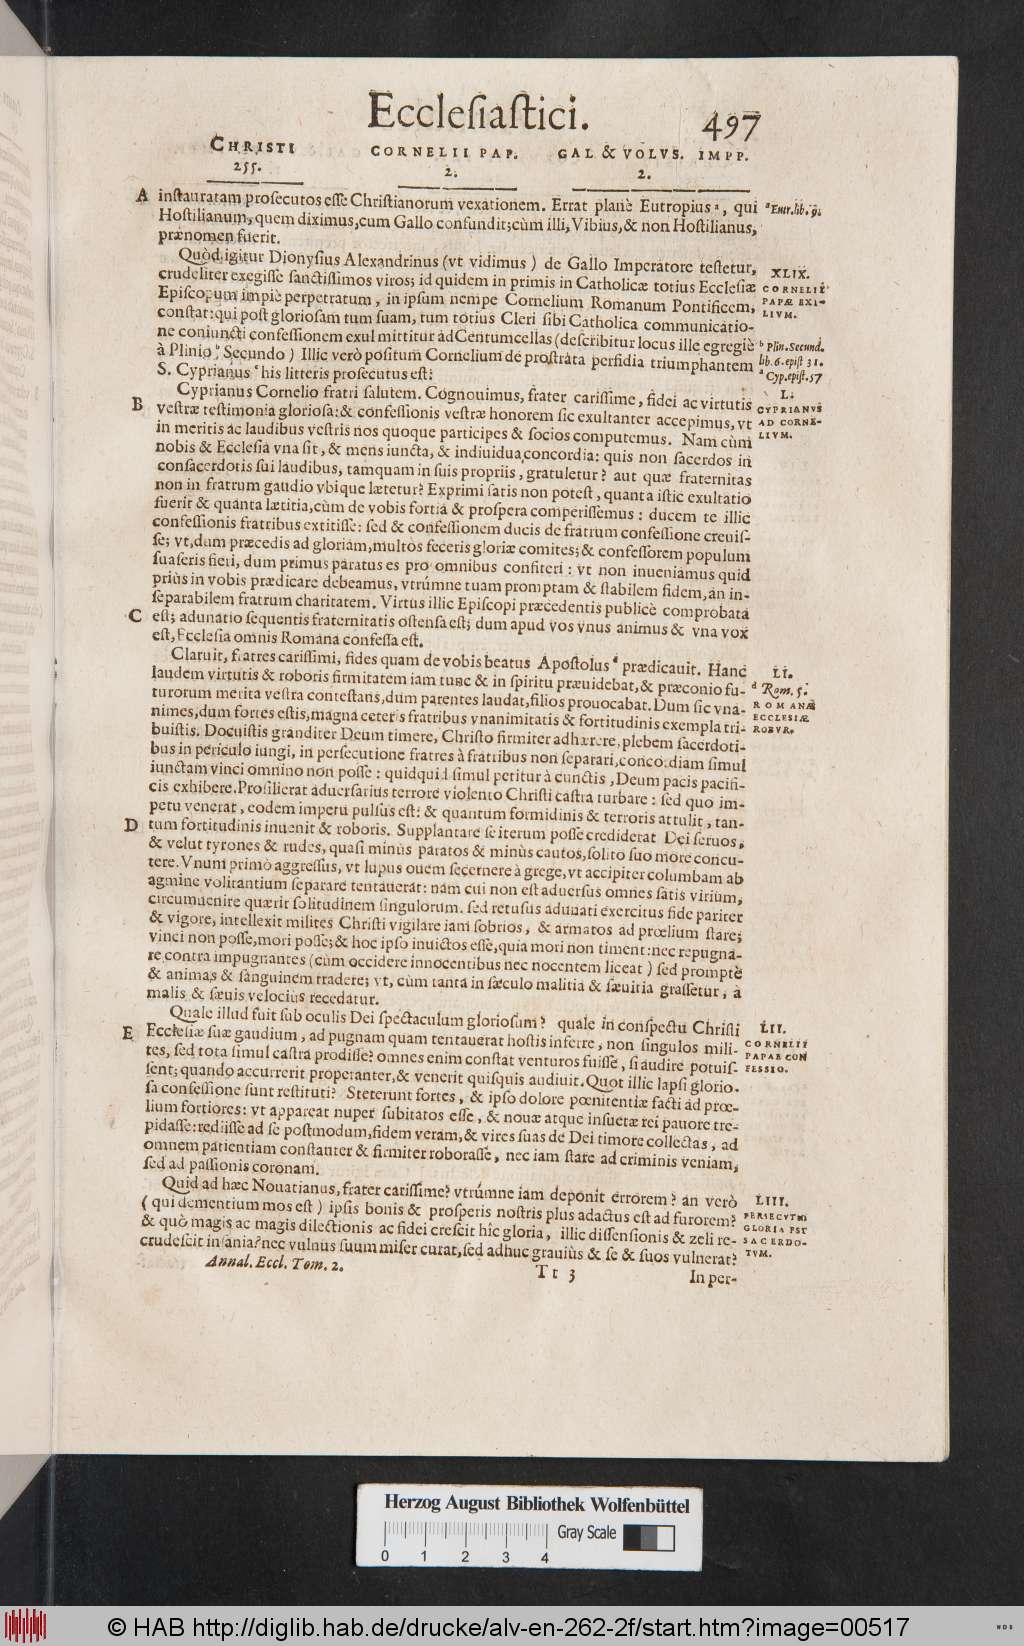 Eccleſiaſtici.
497
CHRISTI
255.
CORNELII PAP.
2.
GAL & VOLVS. IMPP.
2.
A inſtauratam proſecutos eſſe Chriſtianorum vexationem. Errat planè Eutropiusª, qui
Hoſtilianum, quem diximus, cum Gallo confundit; cùm illi, Vibius, & non Hoſtilianus,
prænomen fuerit.
ª Eutr. lib. 9.
Quòd igitur Dionyſius Alexandrinus (vt vidimus) de Gallo Imperatore teſtetur,
crudeliter exegiſſe ſanctiſſimos viros; id quidem in primis in Catholicæ totius Eccleſiæ
Epiſcopum impiè perpetratum, in ipſum nempe Cornelium Romanum Pontificem,
conſtat: qui poſt glorioſam tum ſuam, tum totius Cleri ſibi Catholica communicatio-
ne coniuncti confeſſionem exul mittitur ad Centumcellas (deſcribitur locus ille egregiè
à Plinio ᵇ Secundo) Illic verò poſitum Cornelium de proſtrata perfidia triumphantem
S. Cyprianus ᶜ his litteris proſecutus eſt:
XLIX.
CORNELII
PAPÆ EXI-
LIVM.
ᵇ Plin. Secund.
lib. 6. epiſt 31.
ª Cyp. epiſt. 57
Cyprianus Cornelio fratri ſalutem. Cognouimus, frater cariſſime, fidei ac virtutis
B veſtræ teſtimonia glorioſa: & confeſſionis veſtræ honorem ſic exultanter accepimus, vt
in meritis ac laudibus veſtris nos quoque participes & ſocios computemus. Nam cùm
nobis & Eccleſia vna ſit, & mens iuncta, & indiuidua concordia: quis non ſacerdos in
conſacerdotis ſui laudibus, tamquam in ſuis propriis, gratuletur? aut quæ fraternitas
non in fratrum gaudio vbique lætetur? Exprimi ſatis non poteſt, quanta iſtic exultatio
fuerit & quanta lætitia, cùm de vobis fortia & proſpera comperiſſemus: ducem te illic
confeſſionis fratribus extitiſſe: ſed & confeſſionem ducis de fratrum confeſſione creuiſ-
ſe; vt, dum præcedis ad gloriam, multos feceris gloriæ comites; & confeſſorem populum
ſuaſeris fieri, dum primus paratus es pro omnibus confiteri: vt non inueniamus quid
priùs in vobis prædicare debeamus, vtrúmne tuam promptam & ſtabilem fidem, an in-
ſeparabilem fratrum charitatem. Virtus illic Epiſcopi præcedentis publicè comprobata
C eſt; adunatio ſequentis fraternitatis oſtenſa eſt; dum apud vos vnus animus & vna vox
eſt, Eccleſia omnis Romana confeſſa eſt.
L.
CYPRIANVS
AD CORNE-
LIVM.
Claruit, fratres cariſſimi, fides quam de vobis beatus Apoſtolus ᵈ prædicauit. Hanc
laudem virtutis & roboris firmitatem iam tunc & in ſpiritu præuidebat, & præconio fu-
turorum merita veſtra conteſtans, dum parentes laudat, filios prouocabat. Dum ſic vna-
nimes, dum fortes eſtis, magna ceteris fratribus vnanimitatis & fortitudinis exempla tri-
buiſtis. Docuiſtis granditer Deum timere, Chriſto firmiter adhærere, plebem ſacerdoti-
bus in periculo iungi, in perſecutione fratres à fratribus non ſeparari, concordiam ſimul
iunctam vinci omnino non poſſe: quidquid ſimul petitur à cunctis, Deum pacis pacifi-
cis exhibere. Proſilierat aduerſarius terrore violento Chriſti caſtra turbare: ſed quo im-
petu venerat, eodem impetu pulſus eſt: & quantum formidinis & terroris attulit, tan-
D tum fortitudinis inuenit & roboris. Supplantare ſe iterum poſſe crediderat Dei ſeruos,
& velut tyrones & rudes, quaſi minùs paratos & minùs cautos, ſolito ſuo more concu-
tere. Vnum primò aggreſſus, vt lupus ouem ſecernere à grege, vt accipiter columbam ab
agmine volitantium ſeparare tentauerat: nam cui non eſt aduerſus omnes ſatis virium,
circumuenire quærit ſolitudinem ſingulorum. ſed retuſus adunati exercitus fide pariter
& vigore, intellexit milites Chriſti vigilare iam ſobrios, & armatos ad prœlium ſtare;
vinci non poſſe, mori poſſe; & hoc ipſo inuictos eſſe, quia mori non timent: nec repugna-
re contra impugnantes (cùm occidere innocentibus nec nocentem liceat) ſed promptè
& animas & ſanguinem tradere; vt, cùm tanta in ſæculo malitia & ſæuitia graſſetur, à
malis & ſæuis velociùs recedatur.
LI.
ᵈ Rom. 5.
ROMANÆ
ECCLESIÆ
ROBVR.
Quale illud fuit ſub oculis Dei ſpectaculum glorioſum? quale in conſpectu Chriſti
E Eccleſiæ ſuæ gaudium, ad pugnam quam tentauerat hoſtis inferre, non ſingulos mili-
tes, ſed tota ſimul caſtra prodiſſe? omnes enim conſtat venturos fuiſſe, ſi audire potuiſ-
ſent; quando accurrerit properanter, & venerit quiſquis audiuit. Quot illic lapſi glorio-
ſa confeſſione ſunt reſtituti? Steterunt fortes, & ipſo dolore pœnitentiæ facti ad prœ-
lium fortiores: vt appareat nuper ſubitatos eſſe, & nouæ atque inſuetæ rei pauore tre-
pidaſſe: rediiſſe ad ſe poſtmodum, fidem veram, & vires ſuas de Dei timore collectas, ad
omnem patientiam conſtanter & firmiter roboraſſe, nec iam ſtare ad criminis veniam,
ſed ad paſſionis coronam.
LII.
CORNELII
PAPAE CON
FESSIO.
Quid ad hæc Nouatianus, frater cariſſime? vtrúmne iam deponit errorem? an verò
(qui dementium mos eſt) ipſis bonis & proſperis noſtris plus adactus eſt ad furorem?
& quò magis ac magis dilectionis ac fidei creſcit hîc gloria, illic diſſenſionis & zeli re-
crudeſcit inſania? nec vulnus ſuum miſer curat, ſed adhuc grauiùs & ſe & ſuos vulnerat?
LIII.
PERSECVTIO
GLORIA EST
SACERDO-
TVM.
Annal. Eccl. Tom. 2.
Tt 3
In per-
Herzog August Bibliothek Wolfenbüttel
Gray Scale
0 1 2 3 4
© HAB http://diglib.hab.de/drucke/alv-en-262-2f/start.htm?image=00517